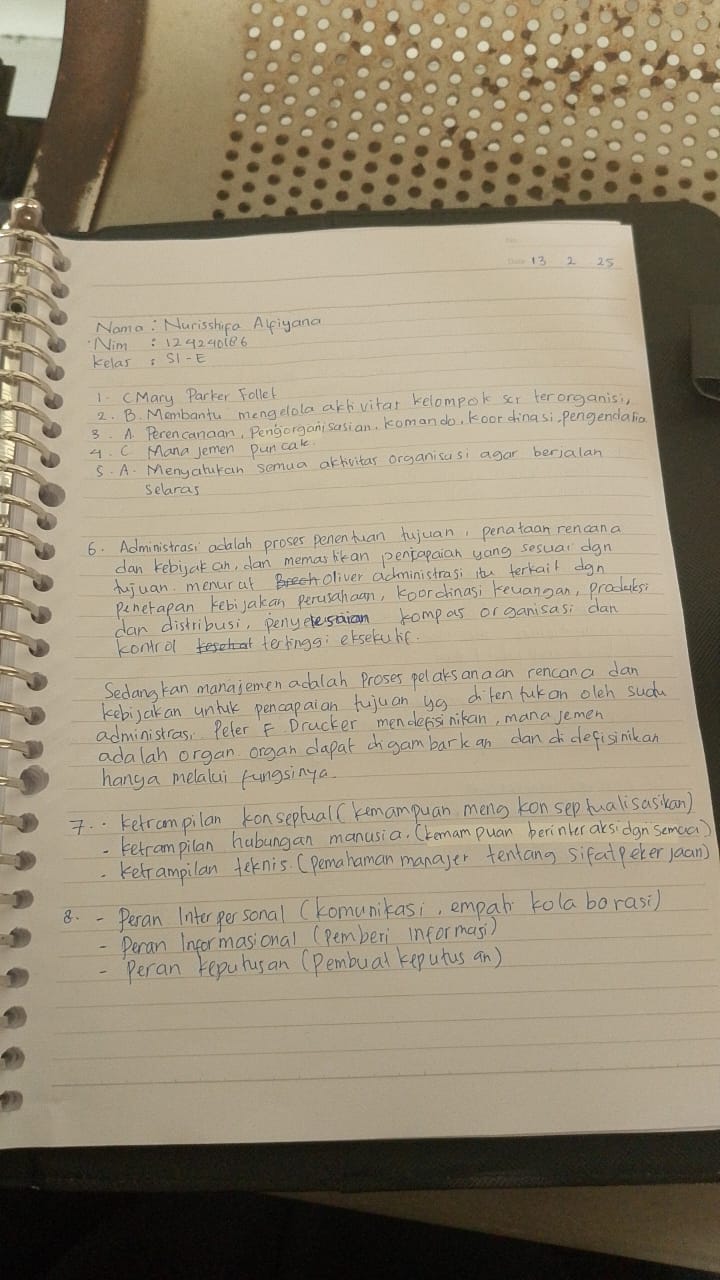 No.
Date 13 2 25
Nama : Nurisshifa Alfiyana
Nim : 124240186
Kelas : SI-E
1. C Mary Parker Follet
2. B. Membantu mengelola aktivitas kelompok scr terorganisi,
3. A. Perencanaan, Pengorganisasian, komando, koordinasi, pengendalia
4. C Manajemen puncak.
5. A. Menyatukan semua aktivitas organisasi agar berjalan
selaras
6. Administrasi adalah proses penentuan tujuan, penataan rencana
dan kebijakan, dan memastikan pencapaian yang sesuai dgn
tujuan. menurut Brech Oliver administrasi itu terkait dgn
penetapan kebijakan perusahaan, koordinasi keuangan, produksi
dan distribusi, penyelesaian kompas organisasi dan
kontrol tertinggi eksekutif.
Sedangkan manajemen adalah proses pelaksanaan rencana dan
kebijakan untuk pencapaian tujuan yg ditentukan oleh sudu
administrasi Peter F Drucker mendefisinikan, manajemen
adalah organ organ dapat digambarkan dan didefisinikan
hanya melalui fungsinya.
7. - ketrampilan konseptual (kemampuan mengkonseptualisasikan)
- ketrampilan hubungan manusia. (kemampuan berinteraksi dgn semua)
- ketrampilan teknis. (pemahaman manajer tentang sifat pekerjaan)
8. - Peran Interpersonal (komunikasi, empati kolaborasi)
- Peran Informasional (pemberi informasi)
- Peran keputusan (Pembuat keputusan)